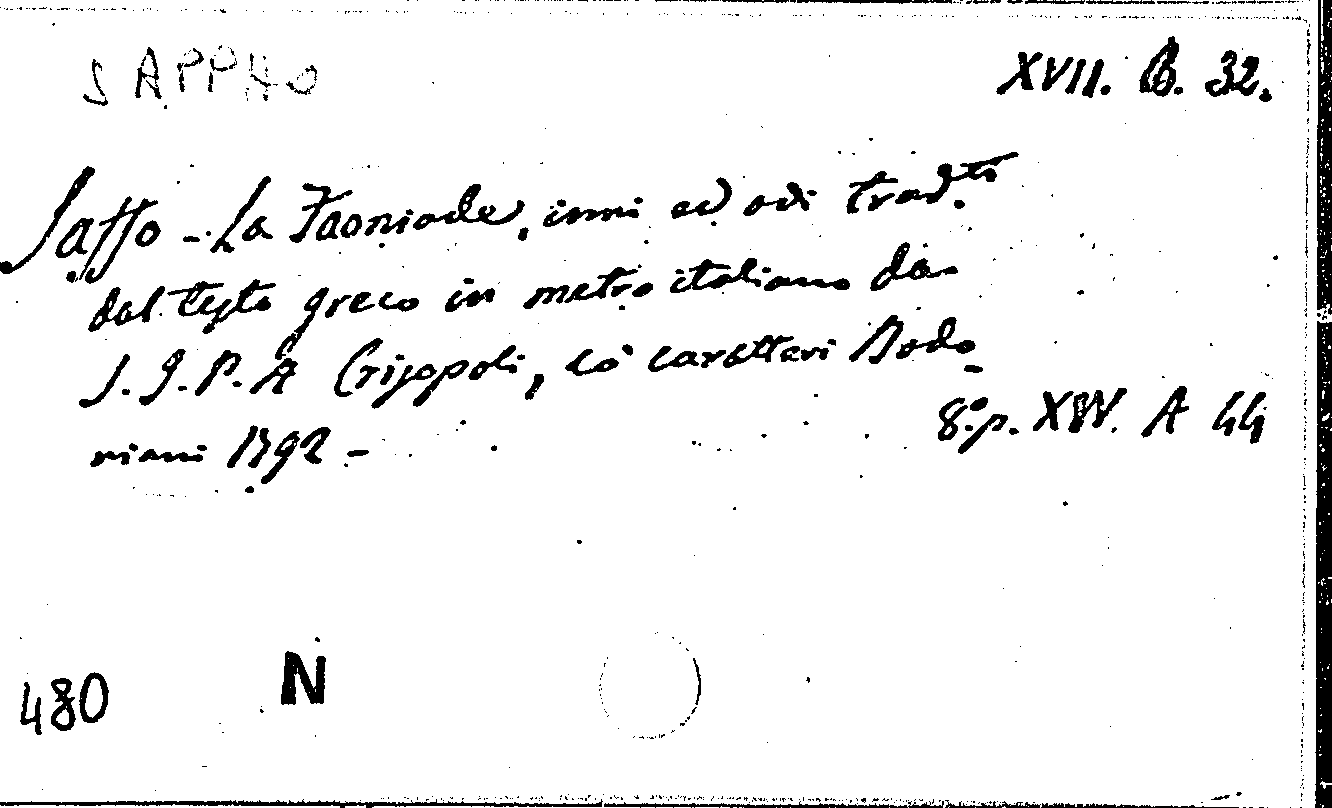 SAPPHO
XVII. B. 32.
Saffo - La Faoniade, inni ed odi trad.to
dal testo greco in metro italiano da
S. I. P. A Crisopoli, co' caratteri Bodo
niani 1792 -
8.o p. XVV. A 44
480 N